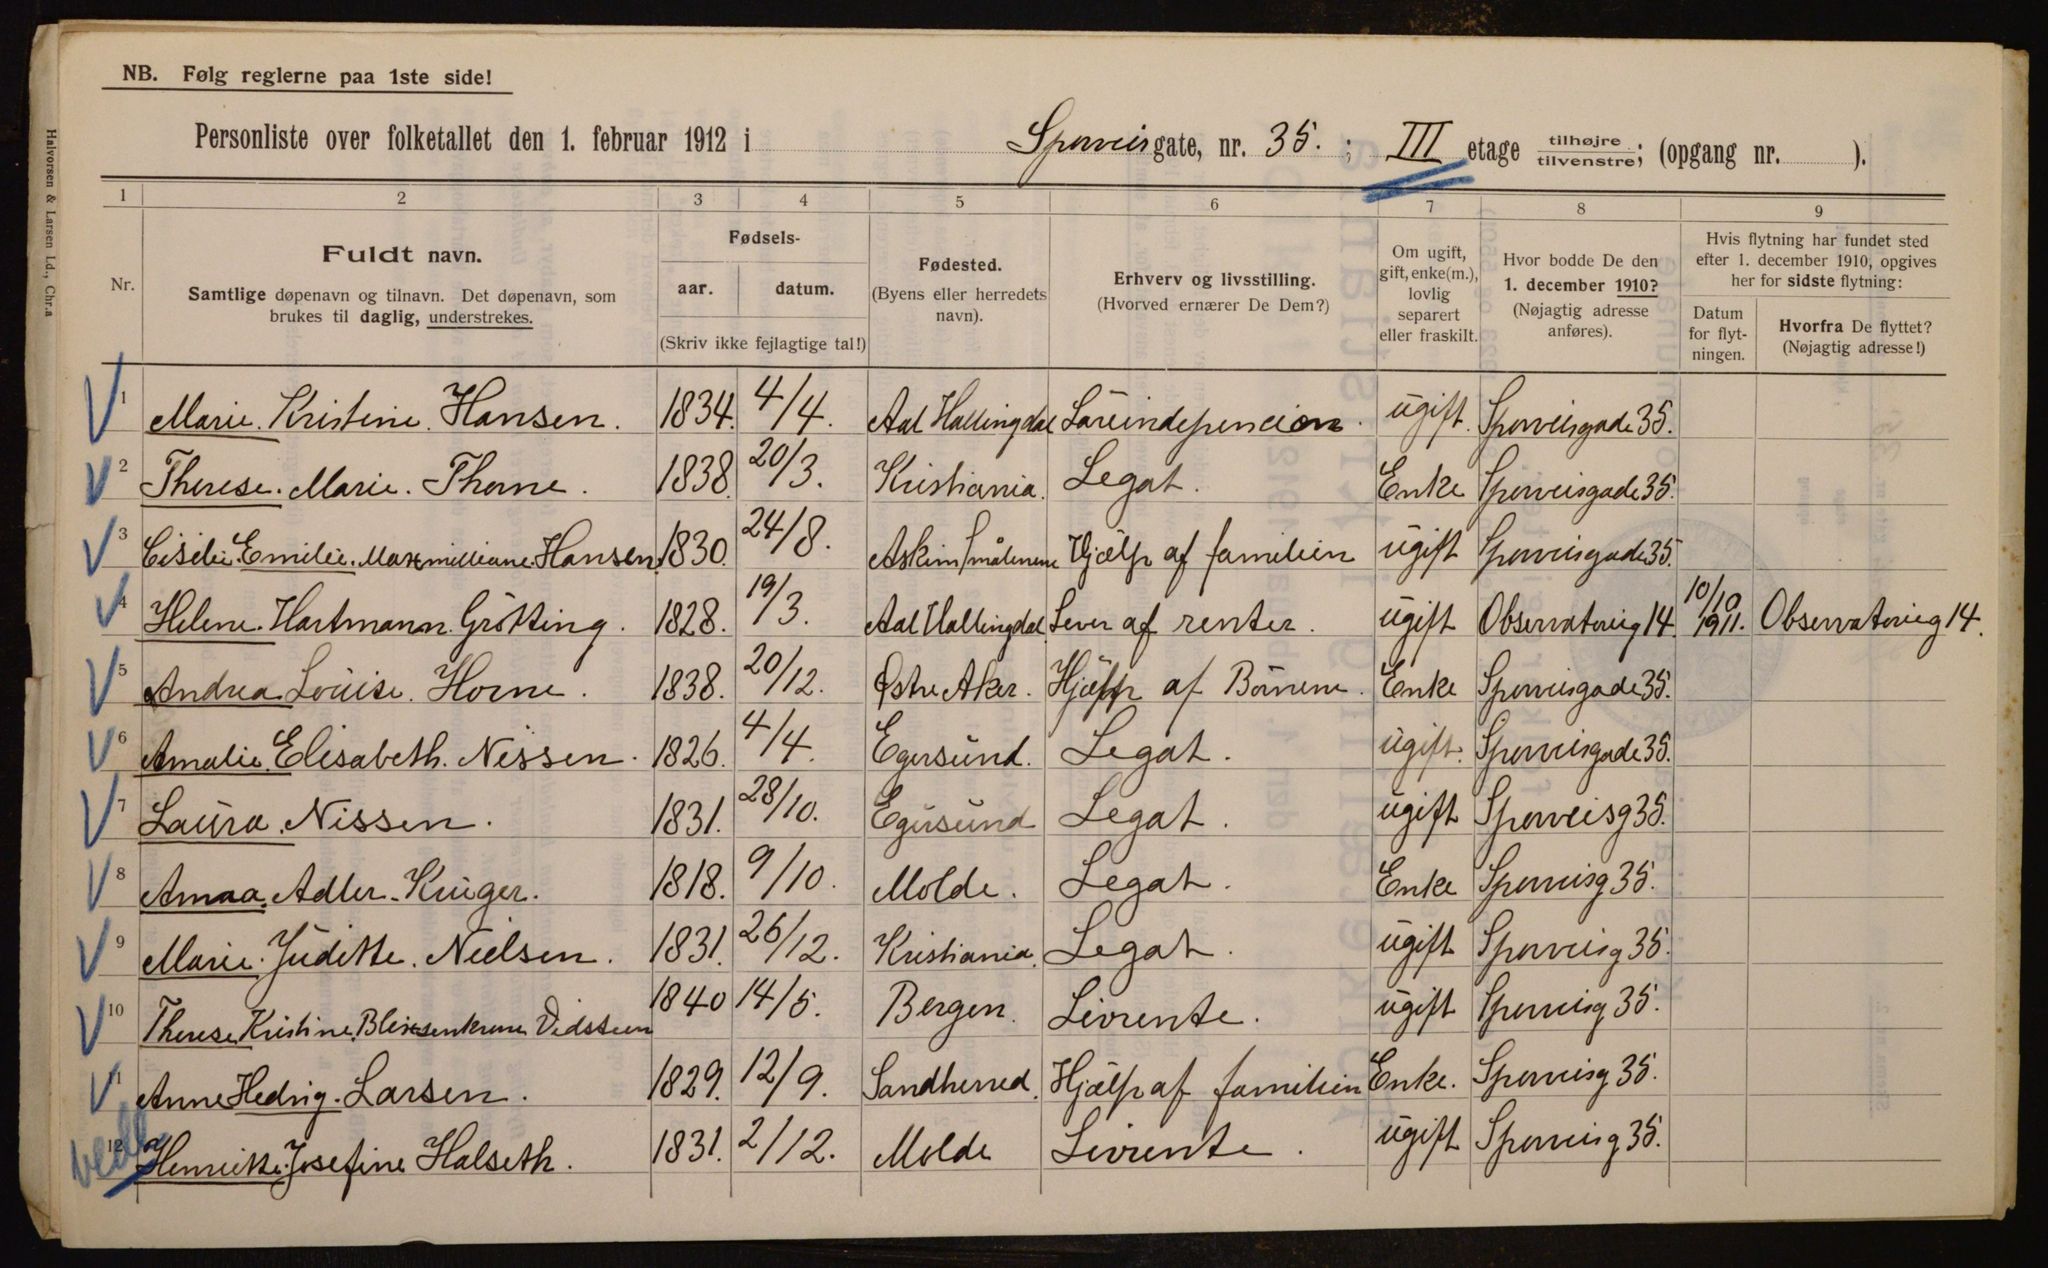 NB. Følg reglerne paa 1ste side!
Personliste over folketallet den 1. februar 1912 i Sporveisgate, nr. 35. ; III etage tilhøjre tilvenstre; (opgang nr. ).
Halvorsen & Larsen Ld., Chr.a
1 2 3 4 5 6 7 8 9
Nr.
Fuldt navn.
Samtlige døpenavn og tilnavn. Det døpenavn, som
brukes til daglig, understrekes.
Fødsels-
aar. datum.
(Skriv ikke fejlagtige tal!)
Fødested.
(Byens eller herredets
navn).
Erhverv og livsstilling.
(Hvorved ernærer De Dem?)
Om ugift,
gift, enke(m.),
lovlig
separert
eller fraskilt.
Hvor bodde De den
1. december 1910?
(Nøjagtig adresse
anføres).
Hvis flytning har fundet sted
efter 1. december 1910, opgives
her for sidste flytning:
Datum
for flyt-
ningen.
Hvorfra De flyttet?
(Nøjagtig adresse!)
1 Marie Kristine Hansen. 1834. 4/4. Aal Hallingdal ugift. Sporveisgade 35.
2 Therese. Marie. Thorne. 1838. 20/3. Kristiania. Legat. Enke Sporveisgade 35.
3 Emilie. Hansen. 1830. 24/8. Askim Smålenene Hjælp af familien ugift Sporveisgade 35.
4 Helene. Hartmann Grötting. 1828. 19/3. Aal Hallingdal Lever af renter. ugift Observatorieg 14. 10/10 1911. Observatorieg 14.
5 Andrea Louise. Horne. 1838. 20/12. Østre Aker. Hjælp af Börnene. Enke Sporveisgade 35.
6 Amalie. Elisabeth. Nissen. 1826. 4/4. Egersund. Legat. ugift. Sporveisgade 35.
7 Laura. Nissen. 1831. 28/10. Egersund Legat. ugift Sporveisg 35.
8 Adler. Krüger. 1818. 9/10. Molde. Legat. Enke Sporveisg 35.
9 Marie. Juditte. Nielsen. 1831. 26/12. Kristiania. Legat. ugift Sporveisg 35.
10 Therese. Kristine. Vidsteen 1840 14/5. Bergen. Livrente. ugift Sporveisg 35.
11 Anne Hedvig. Larsen. 1829. 12/9. Sandherred. Hjælp af familien Enke. Sporveisg 35.
12 Henriette. Josefine Halseth. 1831. 2/12. Molde Livrente. ugift Sporveisg 35.